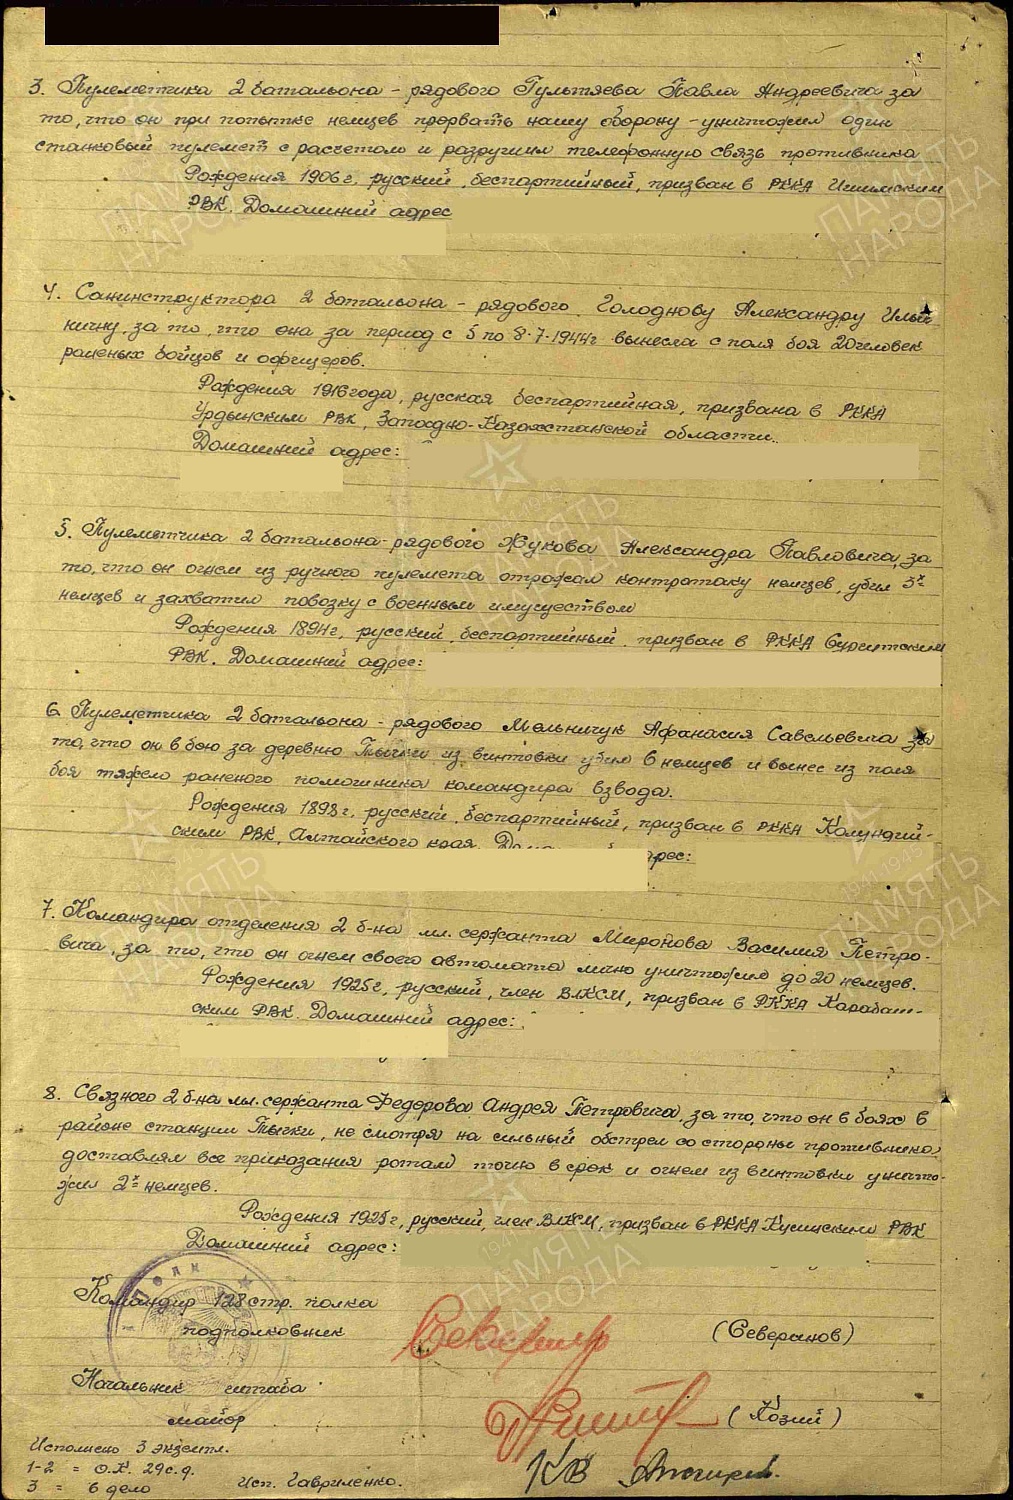 3. Пулеметчика 2 батальона - рядового Гультяева Павла Андреевича за
то, что он при попытке немцев прорвать нашу оборону - уничтожил один
станковый пулемет с расчетом и разрушил телефонную связь противника
Рождения 1906 г, русский, беспартийный, призван в РККА Ишимским
РВК. Домашний адрес
4. Санинструктора 2 батальона - рядового Голоднову Александру Ильи
ничну, за то, что она за период с 5 по 8.7.1944г вынесла с поля боя 20 человек
раненых бойцов и офицеров.
Рождения 1916 года, русская беспартийная, призвана в РККА
Урдынским РВК, Западно-Казахстанской области.
Домашний адрес:
5. Пулеметчика 2 батальона - рядового Жукова Александра Павловича, за
то, что он огнем из ручного пулемета отражал контратаку немцев, убил 5х
немцев и захватил повозку с военным имуществом
Рождения 1894г, русский, беспартийный, призван в РККА
РВК. Домашний адрес:
6. Пулеметчика 2 батальона - рядового Мельничук Афанасия Савельевича за
то, что он в бою за деревню Тычки из винтовки убил 6 немцев и вынес из поля
боя тяжело раненого помошника командира взвода.
Рождения 1898 г, русский, беспартийный, призван в РККА
ским РВК, Алтайского края.
адрес:
7. Командира отделения 2 б-на мл. сержанта Миронова Василия Петро-
вича, за то, что он огнем своего автомата лично уничтожил до 20 немцев.
Рождения 1925г, русский, член ВЛКСМ, призван в РККА Карабаш-
ским РВК. Домашний адрес:
8. Связного 2 б-на мл. сержанта Федорова Андрея Петровича, за то, что он в боях в
районе станции Тычки, не смотря на сильный обстрел со стороны противника
доставлял все приказания ротам точно в срок и огнем из винтовки уничто-
жил 2х немцев.
Рождения 1925г, русский, член ВЛКСМ, призван в РККА Кусинским РВК
Домашний адрес:
Командир 128 стр. полка
подполковник (Северанов)
Начальник штаба
майор (Козий)
Исполнено 3 экземпл.
1-2 = О.К. 29 с.д.
3 = в дело Исп. Гавриленко.
ПОЛК
ПАМЯТЬ
НАРОДА
1941-1945